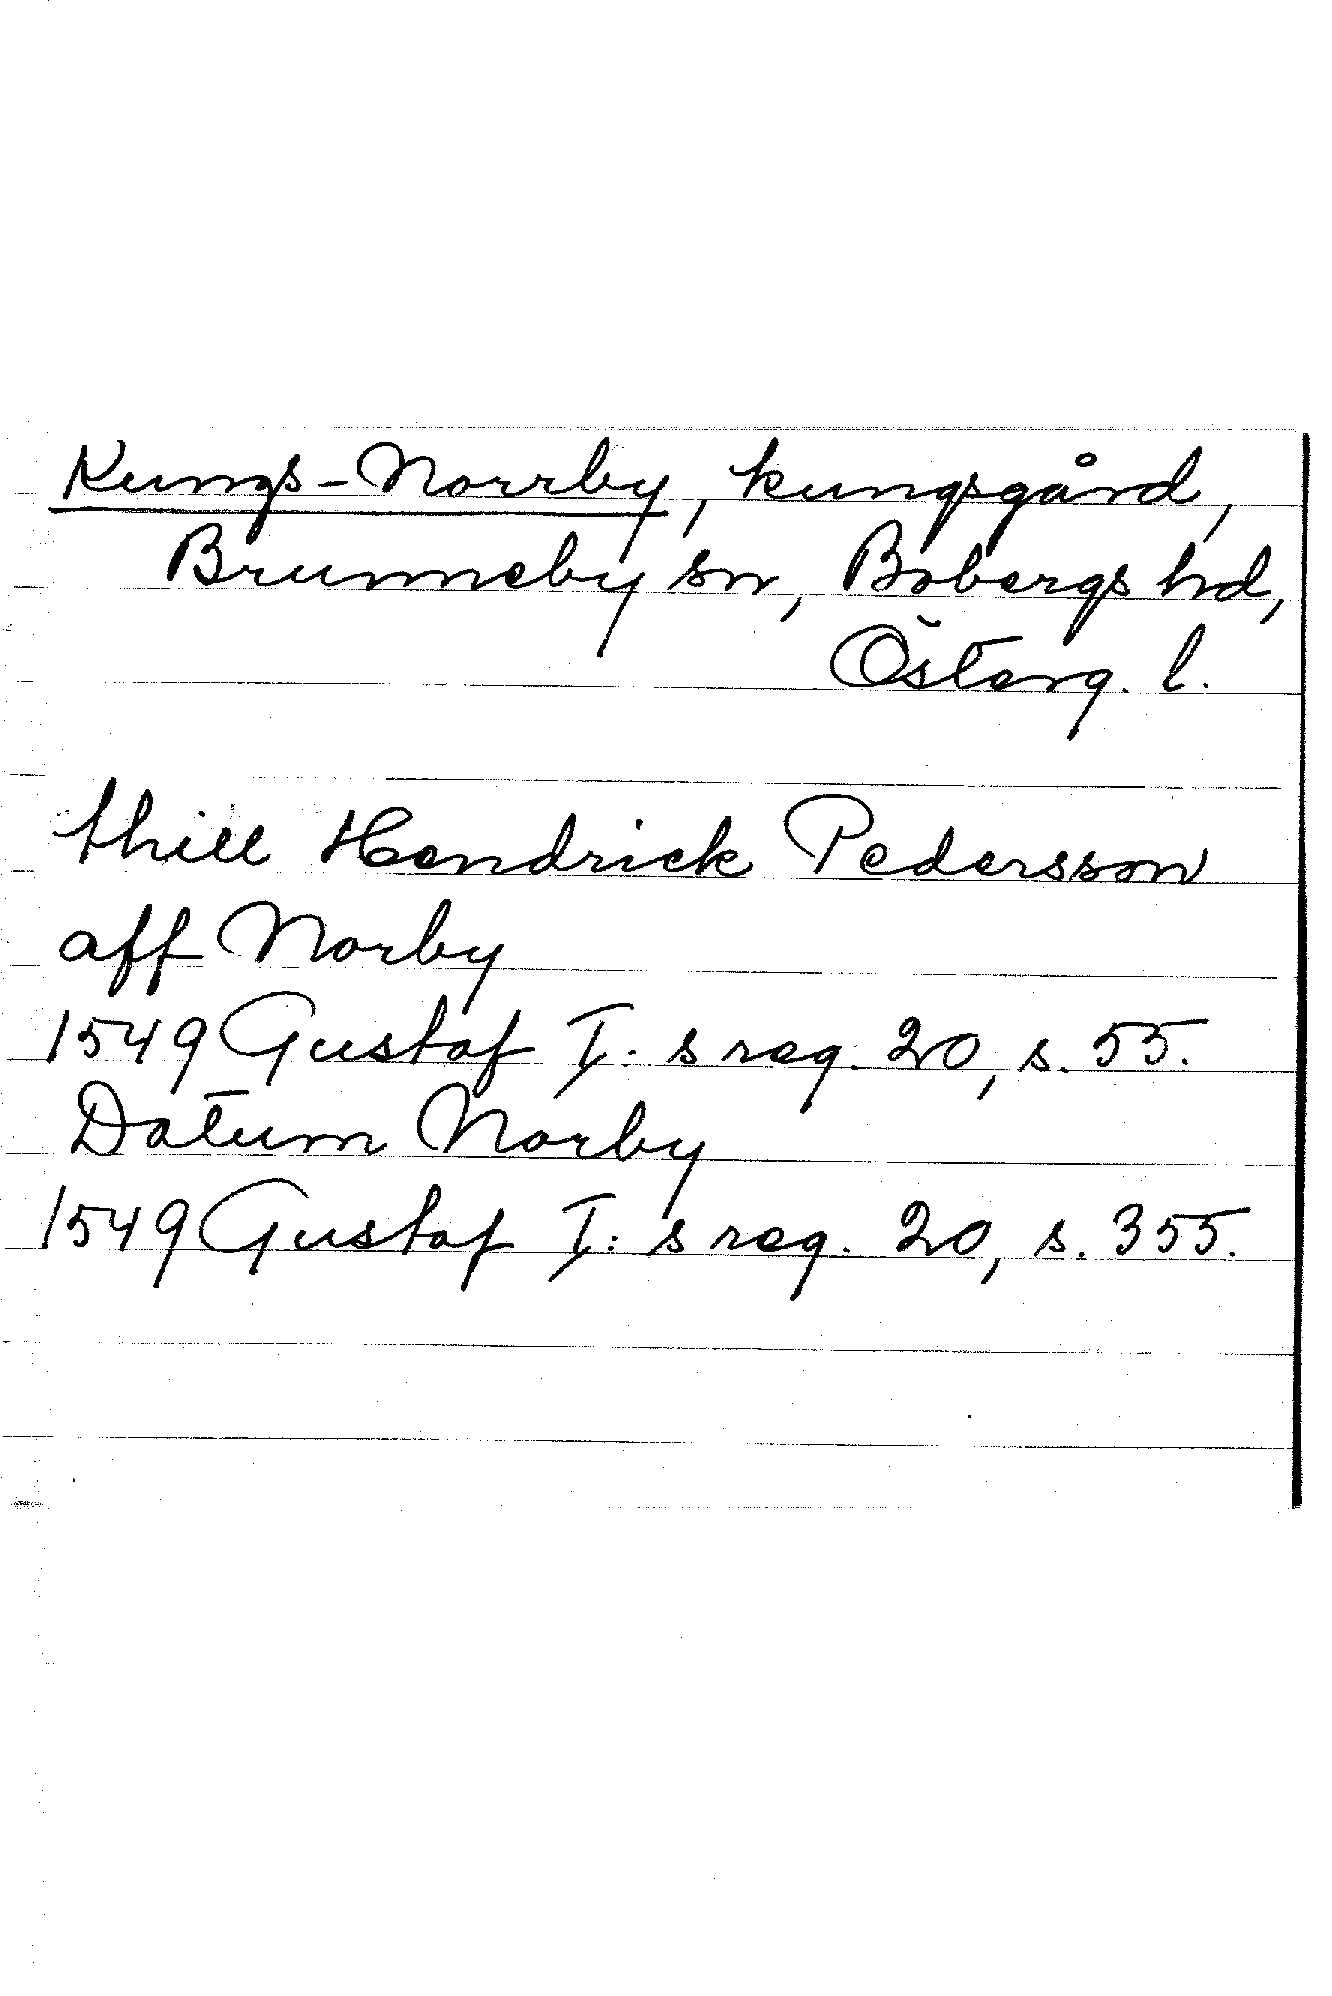 Kungs-Norrby, kungsgård,
Brunneby sn, Bobergs hd,
Österg. l.
thill Hendrick Pedersson
aff Norby
1549 Gustaf I: s reg. 20, s. 55.
Datum Norby
1549 Gustaf I: s reg. 20, s. 355.